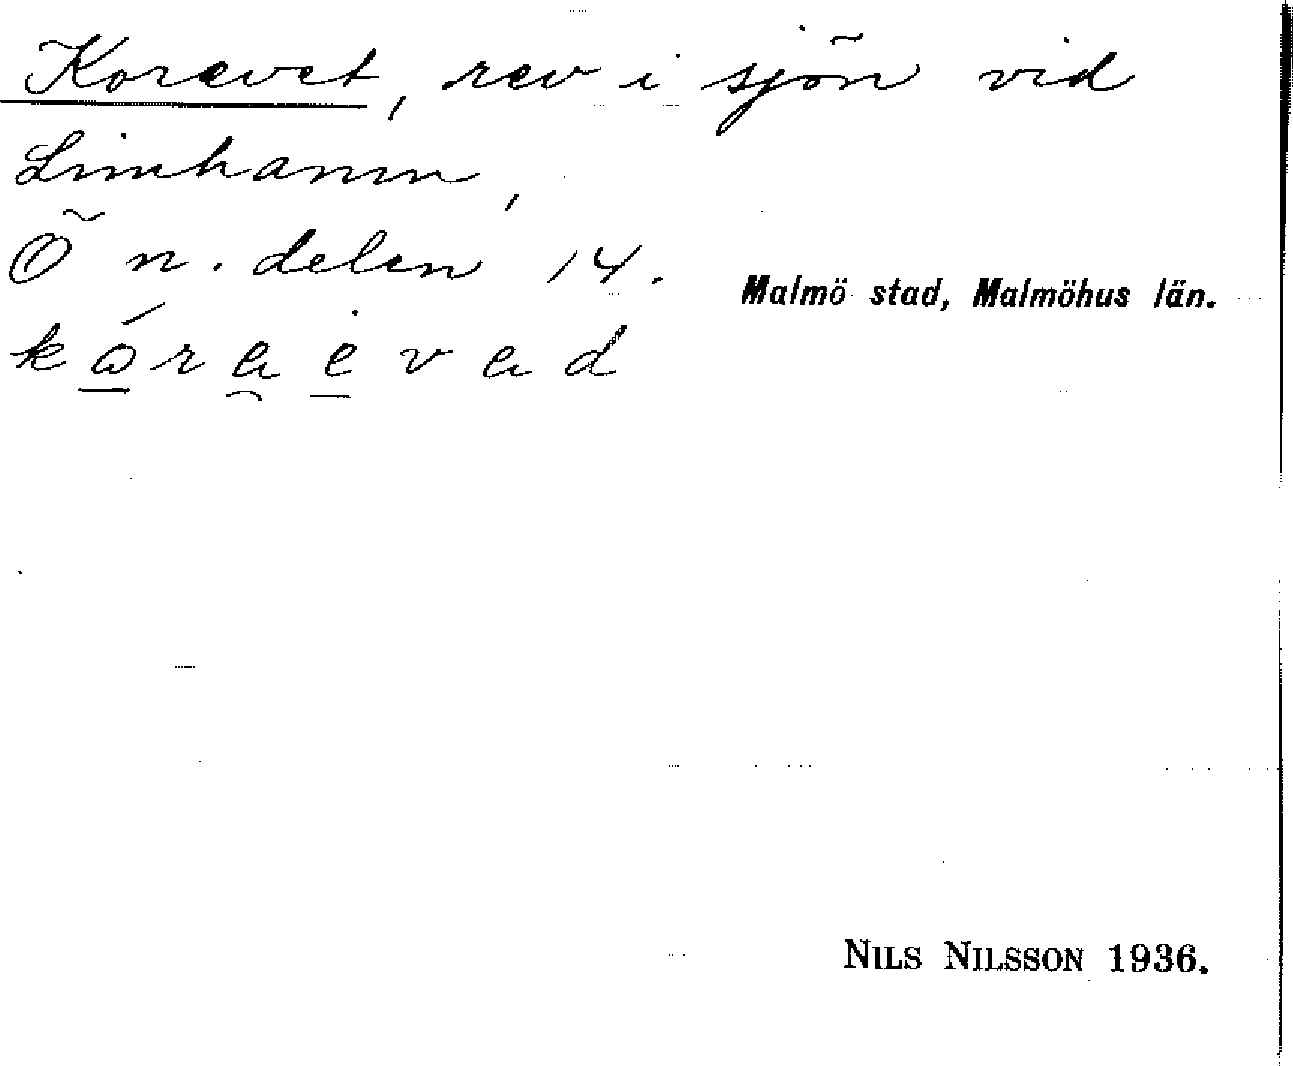 Korevet, rev i sjön vid
Limhamn,
Ö n. delen 14.
Malmö stad, Malmöhus län.
NILS NILSSON 1936.